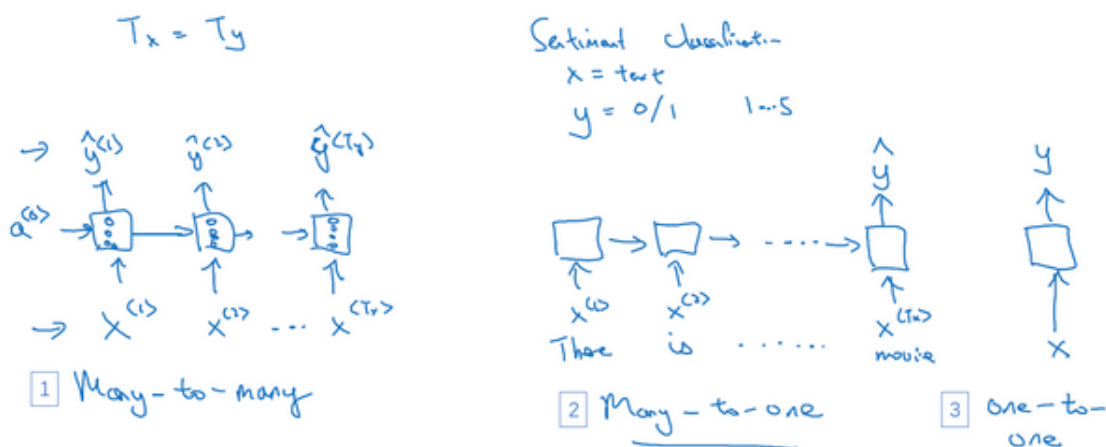 Tx = Ty
ŷ⟨1⟩ ŷ⟨2⟩ ŷ⟨Ty⟩
a⟨0⟩
x⟨1⟩ x⟨2⟩ ... x⟨Tx⟩
1 Many-to-many
Sentiment classification
x = text
y = 0/1 1...5
ŷ
x⟨1⟩ x⟨2⟩ x⟨Tx⟩
There is ...... movie
2 Many-to-one
y
x
3 one-to-
one